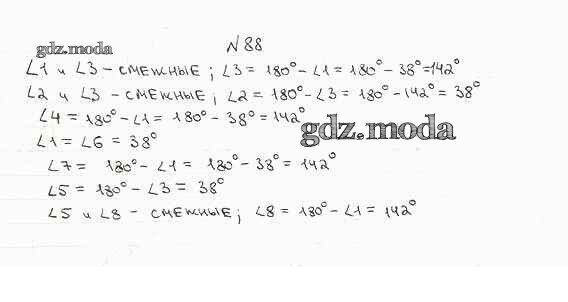 № 88
gdz.moda
∠1 и ∠3 - смежные ; ∠3 = 180° - ∠1 = 180° - 38° = 142°
∠2 и ∠3 - смежные ; ∠2 = 180° - ∠3 = 180° - 142° = 38°
∠4 = 180° - ∠1 = 180° - 38° = 142°
gdz.moda
∠1 = ∠6 = 38°
∠7 = 180° - ∠1 = 180° - 38° = 142°
∠5 = 180° - ∠3 = 38°
∠5 и ∠8 - смежные ; ∠8 = 180° - ∠1 = 142°